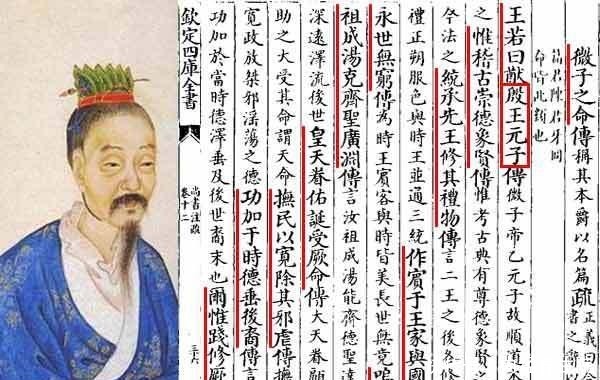 微子之命傳稱其本爵以名篇疏正義曰令
書之辭以
篇君陳君牙冏
命皆此類也
王若曰猷殷王元子傳微子帝乙元子故順道本
之惟稽古崇德象賢傳惟考古典有尊德象賢之
今法之統承先王修其禮物傳言二王之後各修
禮正朔服色與時王並通三統作賓于王家與國
永世無窮傳為時王賓客與時皆美長世無竟嗚
祖成湯克齊聖廣淵傳言汝祖成湯能齊德聖達
深遠澤流後世皇天眷佑誕受厥命傳大天眷顧
助之大受其命謂天命撫民以寬除其邪虐傳撫
寬政放桀邪淫蕩之德功加于時德垂後裔傳言
功加於當時德澤垂及後世裔末也爾惟踐修厥
欽定四庫全書
尚書注疏
卷十二
三十六